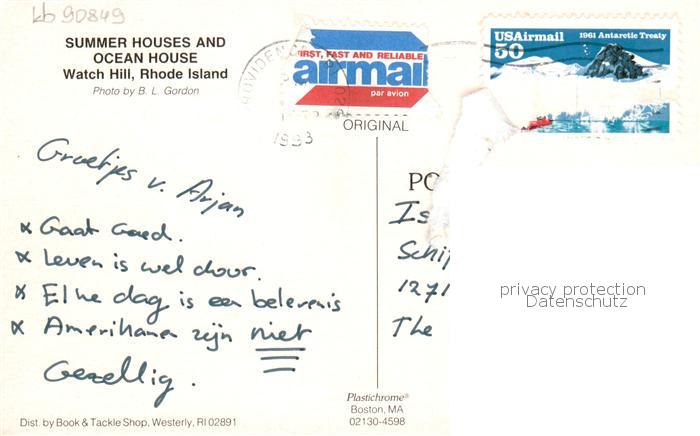 Lb 90849
SUMMER HOUSES AND
OCEAN HOUSE
Watch Hill, Rhode Island
Photo by B. L. Gordon
FIRST, FAST AND RELIABLE
airmail
par avion
USAirmail
50
1961 Antarctic Treaty
1993
ORIGINAL
Groetjes v. Arjan
x Gaat Goed.
x Leven is wel duur.
x Elke dag is een belevenis
x Amerikanen zijn niet
Gezellig.
PO
Is
Schip
1271
The
privacy protection
Datenschutz
Plastichrome®
Boston, MA
02130-4598
Dist. by Book & Tackle Shop, Westerly, RI 02891